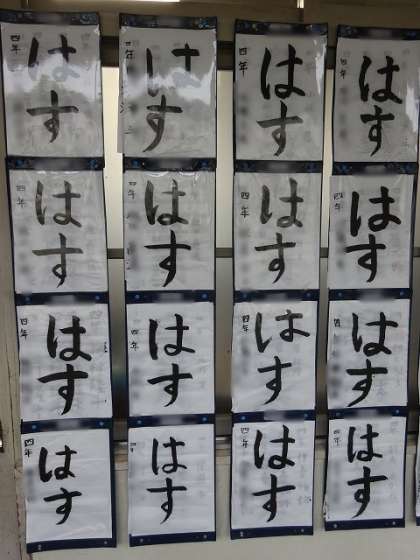 はす
四年
はす
四年
はす
四年
はす
四年
はす
四年
はす
四年
はす
四年
はす
四年
はす
四年
はす
四年
はす
四年
はす
四年
はす
四年
はす
四年
はす
四年
はす
四年